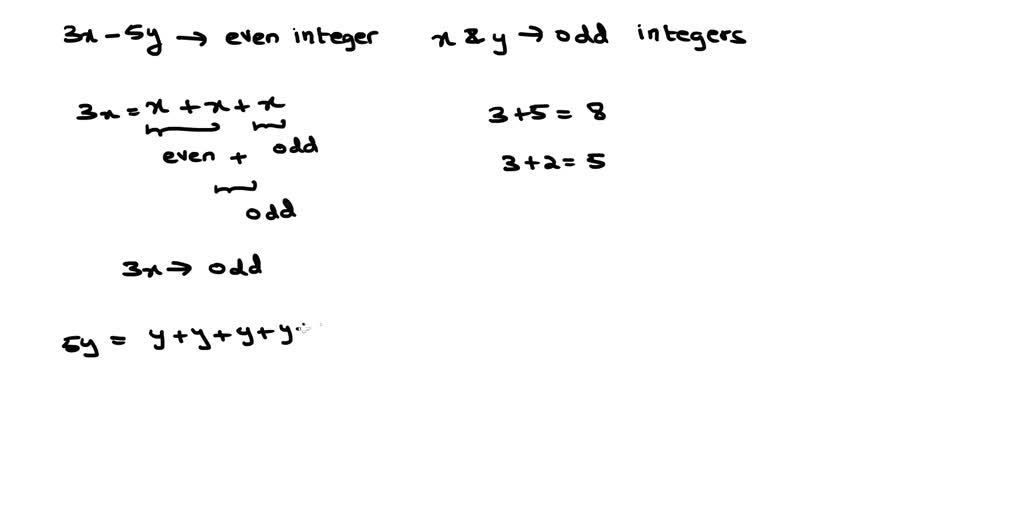 3x - 5y → even integer
x & y → odd integers
3x = x + x + x
even + odd
odd
3x → odd
5y = y + y + y + y
3 + 5 = 8
3 + 2 = 5